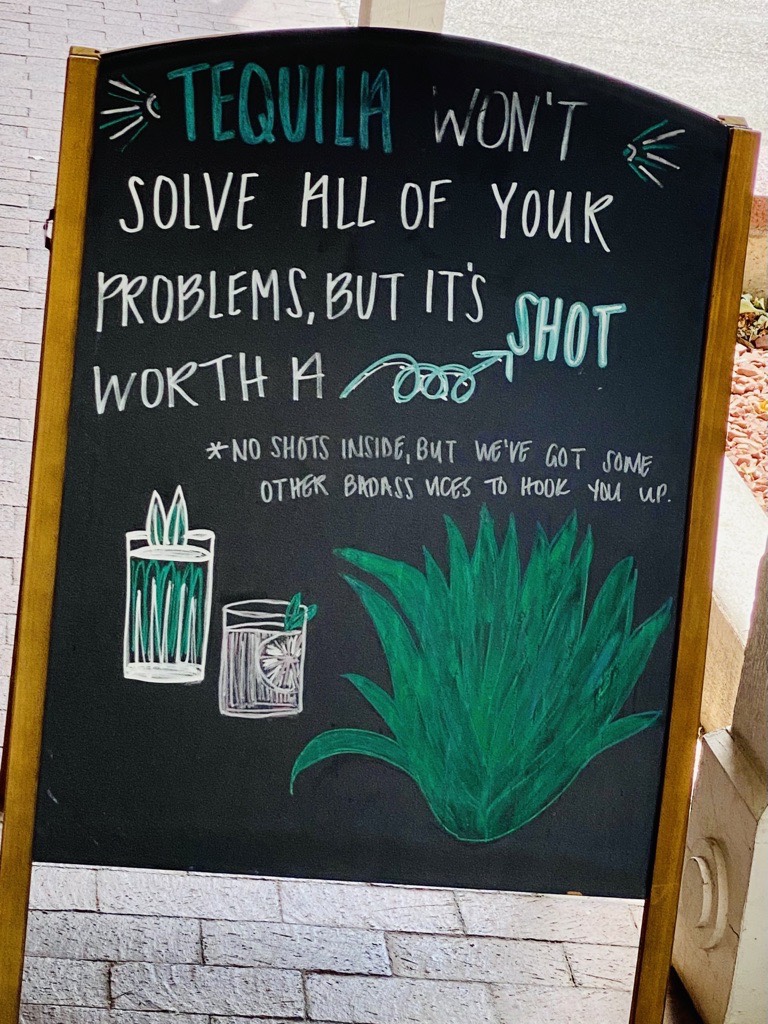 TEQUILA WON'T
SOLVE ALL OF YOUR
PROBLEMS, BUT IT'S
WORTH A SHOT
*NO SHOTS INSIDE, BUT WE'VE GOT SOME
OTHER BADASS VICES TO HOOK YOU UP.